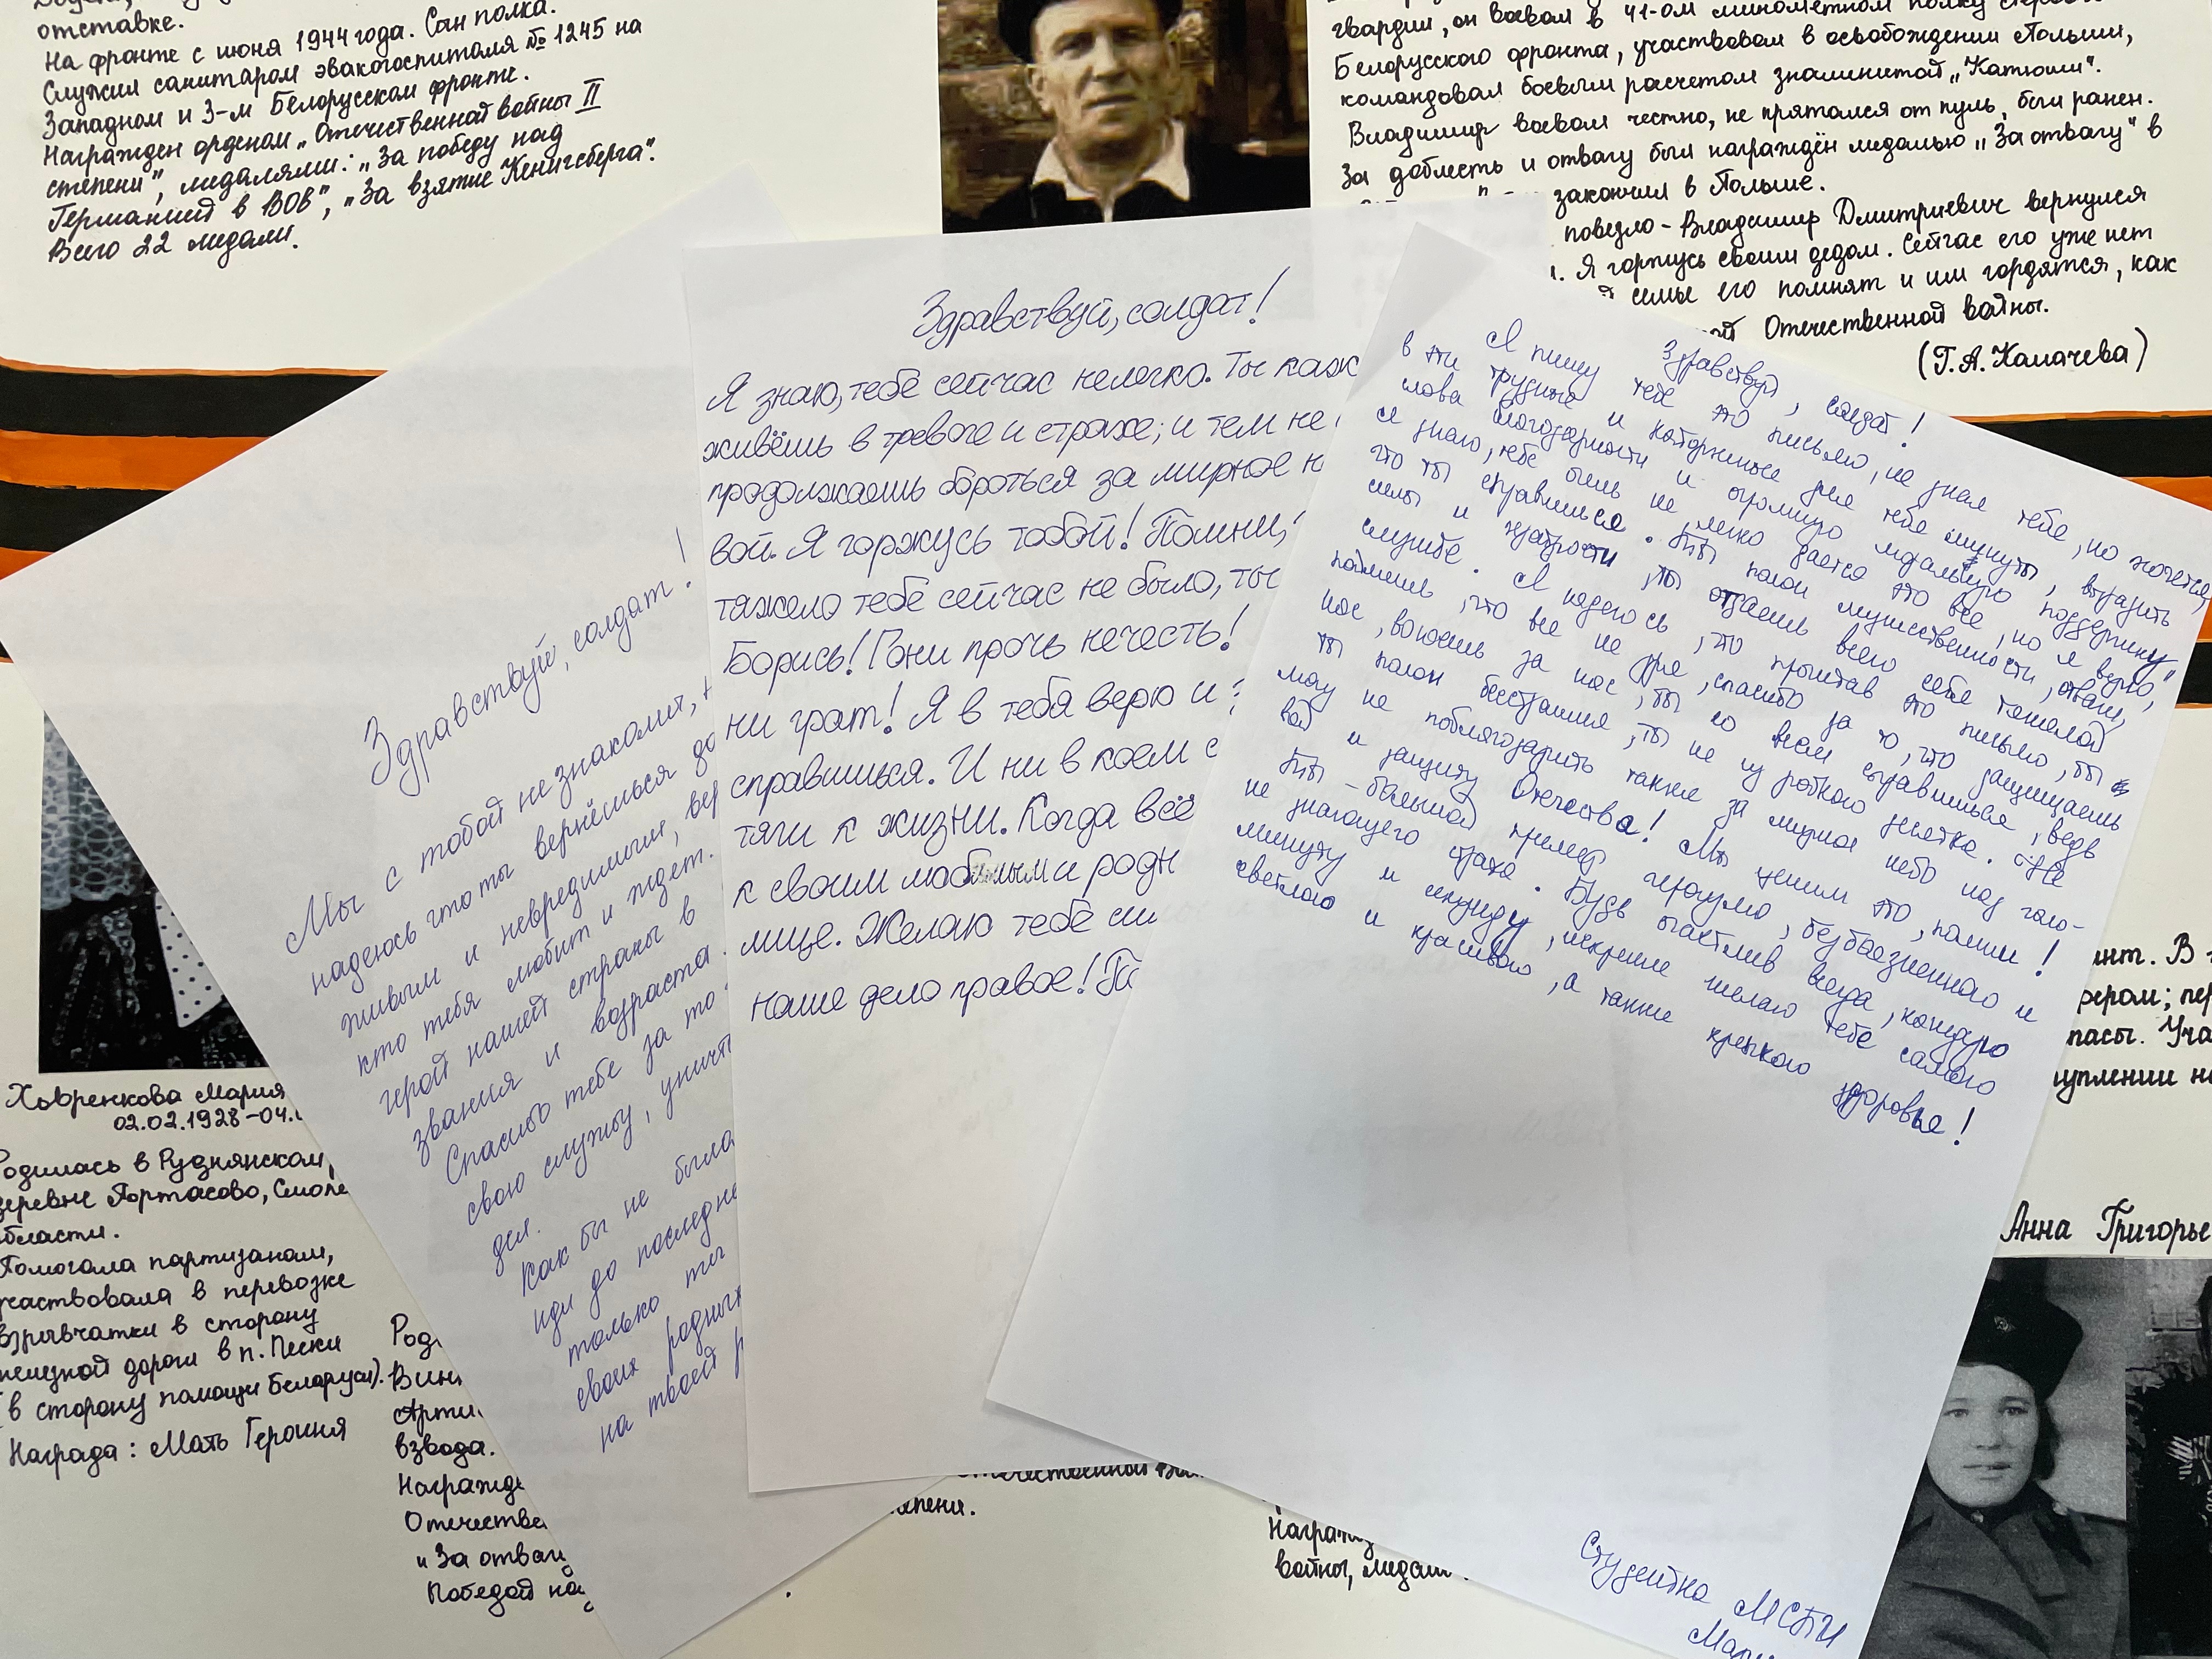 отставке.
На фронте с июня 1944 года. Сын полка.
Служил санитаром эвакогоспиталя № 1245 на
Западном и 3-м Белорусском фронте.
Награжден орденом „Отечественной войны II
степени", медалями: „За победу над
Германией в ВОВ", „За взятие Кенигсберга".
Всего 22 медали.
гвардии, он воевал в 41-ом миномётном полку
Белорусского фронта, участвовал в освобождении Польши,
командовал боевым расчетом знаменитой „Катюши".
Владимир воевал честно, не прятался от пуль, был ранен.
За доблесть и отвагу был награждён медалью „За отвагу" в
закончил в Польше.
повезло - Владимир Дмитриевич вернулся
Я горжусь своим дедом. Сейчас его уже нет
семье его помнят и им гордятся, как
Отечественной войны.
(Г.А. Калачева)
Здравствуй, солдат!
Мы с тобой не знакомы,
надеюсь что ты вернёшься до
живым и невредимым,
кто тебя любит и ждет.
герой нашей страны в
звания и возраста.
Спасибо тебе за то
свою службу, уничт
дел.
Как бы не было
иди до последне
только ты
своих родных
на твоей
Здравствуй, солдат!
Я знаю, тебе сейчас нелегко. Ты каж
живёшь в тревоге и страхе; и тем не
продолжаешь бороться за мирное н
вой. Я горжусь тобой! Помни,
тяжело тебе сейчас не было, ты
Борись! Гони прочь нечесть!
ни грат! Я в тебя верю и з
справишься. И ни в коем с
тяги к жизни. Когда всё
к своим любимым и родн
мице. Желаю тебе си
наше дело правое! По
Здравствуй, солдат!
Я пишу тебе это письмо, не зная тебя, но хочется,
в эти трудные и напряженные для тебя минуты, выразить
слова благодарности и огромную моральную поддержку.
Я знаю, тебе очень не легко дается это все, но я верю,
что ты справишься. Ты полон мужественности, отваги,
силы и храбрости, ты отдаешь всего себя тяжелой
службе. Я надеюсь, что прочитав это письмо, ты
поймешь, что все не зря, спасибо за то, что защищаешь
нас, воюешь за нас, ты со всем справишься, ведь
ты полон бесстрашия, ты не из робкого десятка. Не
могу не поблагодарить также за мирное небо над голо-
вой и защиту Отечества! Мы ценим это, помни!
Ты - большой пример героизма, безбоязненного и
не знающего страха. Будь счастлив всегда, каждую
минуту и секунду, искренне желаю тебе самого
светлого и красивого, а также крепкого здоровья!
Студентка МСПИ
Мари
Ховренкова Мария
02.02.1928-04.
Родилась в Руднянском
деревне Яртасово, Смоле
области.
Помогала партизанам,
участвовала в перевозке
взрывчатки в сторону
железной дороги в п. Пески
(в сторону помощи Беларуси).
Награда: Мать Героиня
взвода.
Награжде
Отечестве
и За отваг
Победой на
Отечественной
степени.
войны, медал
ант. В
фером; пер
пасы. Уча
туплении на
Анна Григорье